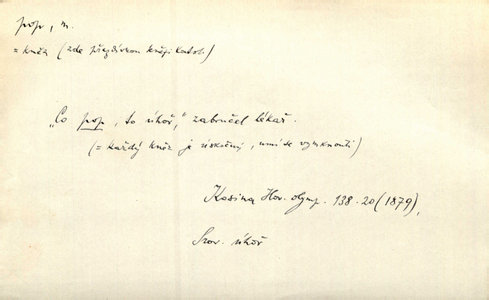 pop, m.
= kněz (zde přezdívkou knězi katol.)
„Co pop, to úhoř,“ zabručel lékař.
(= každý kněz je úskočný, umí se vymknouti)
Kosina Hov. olymp. 138.20 (1879),
Srov. úhoř